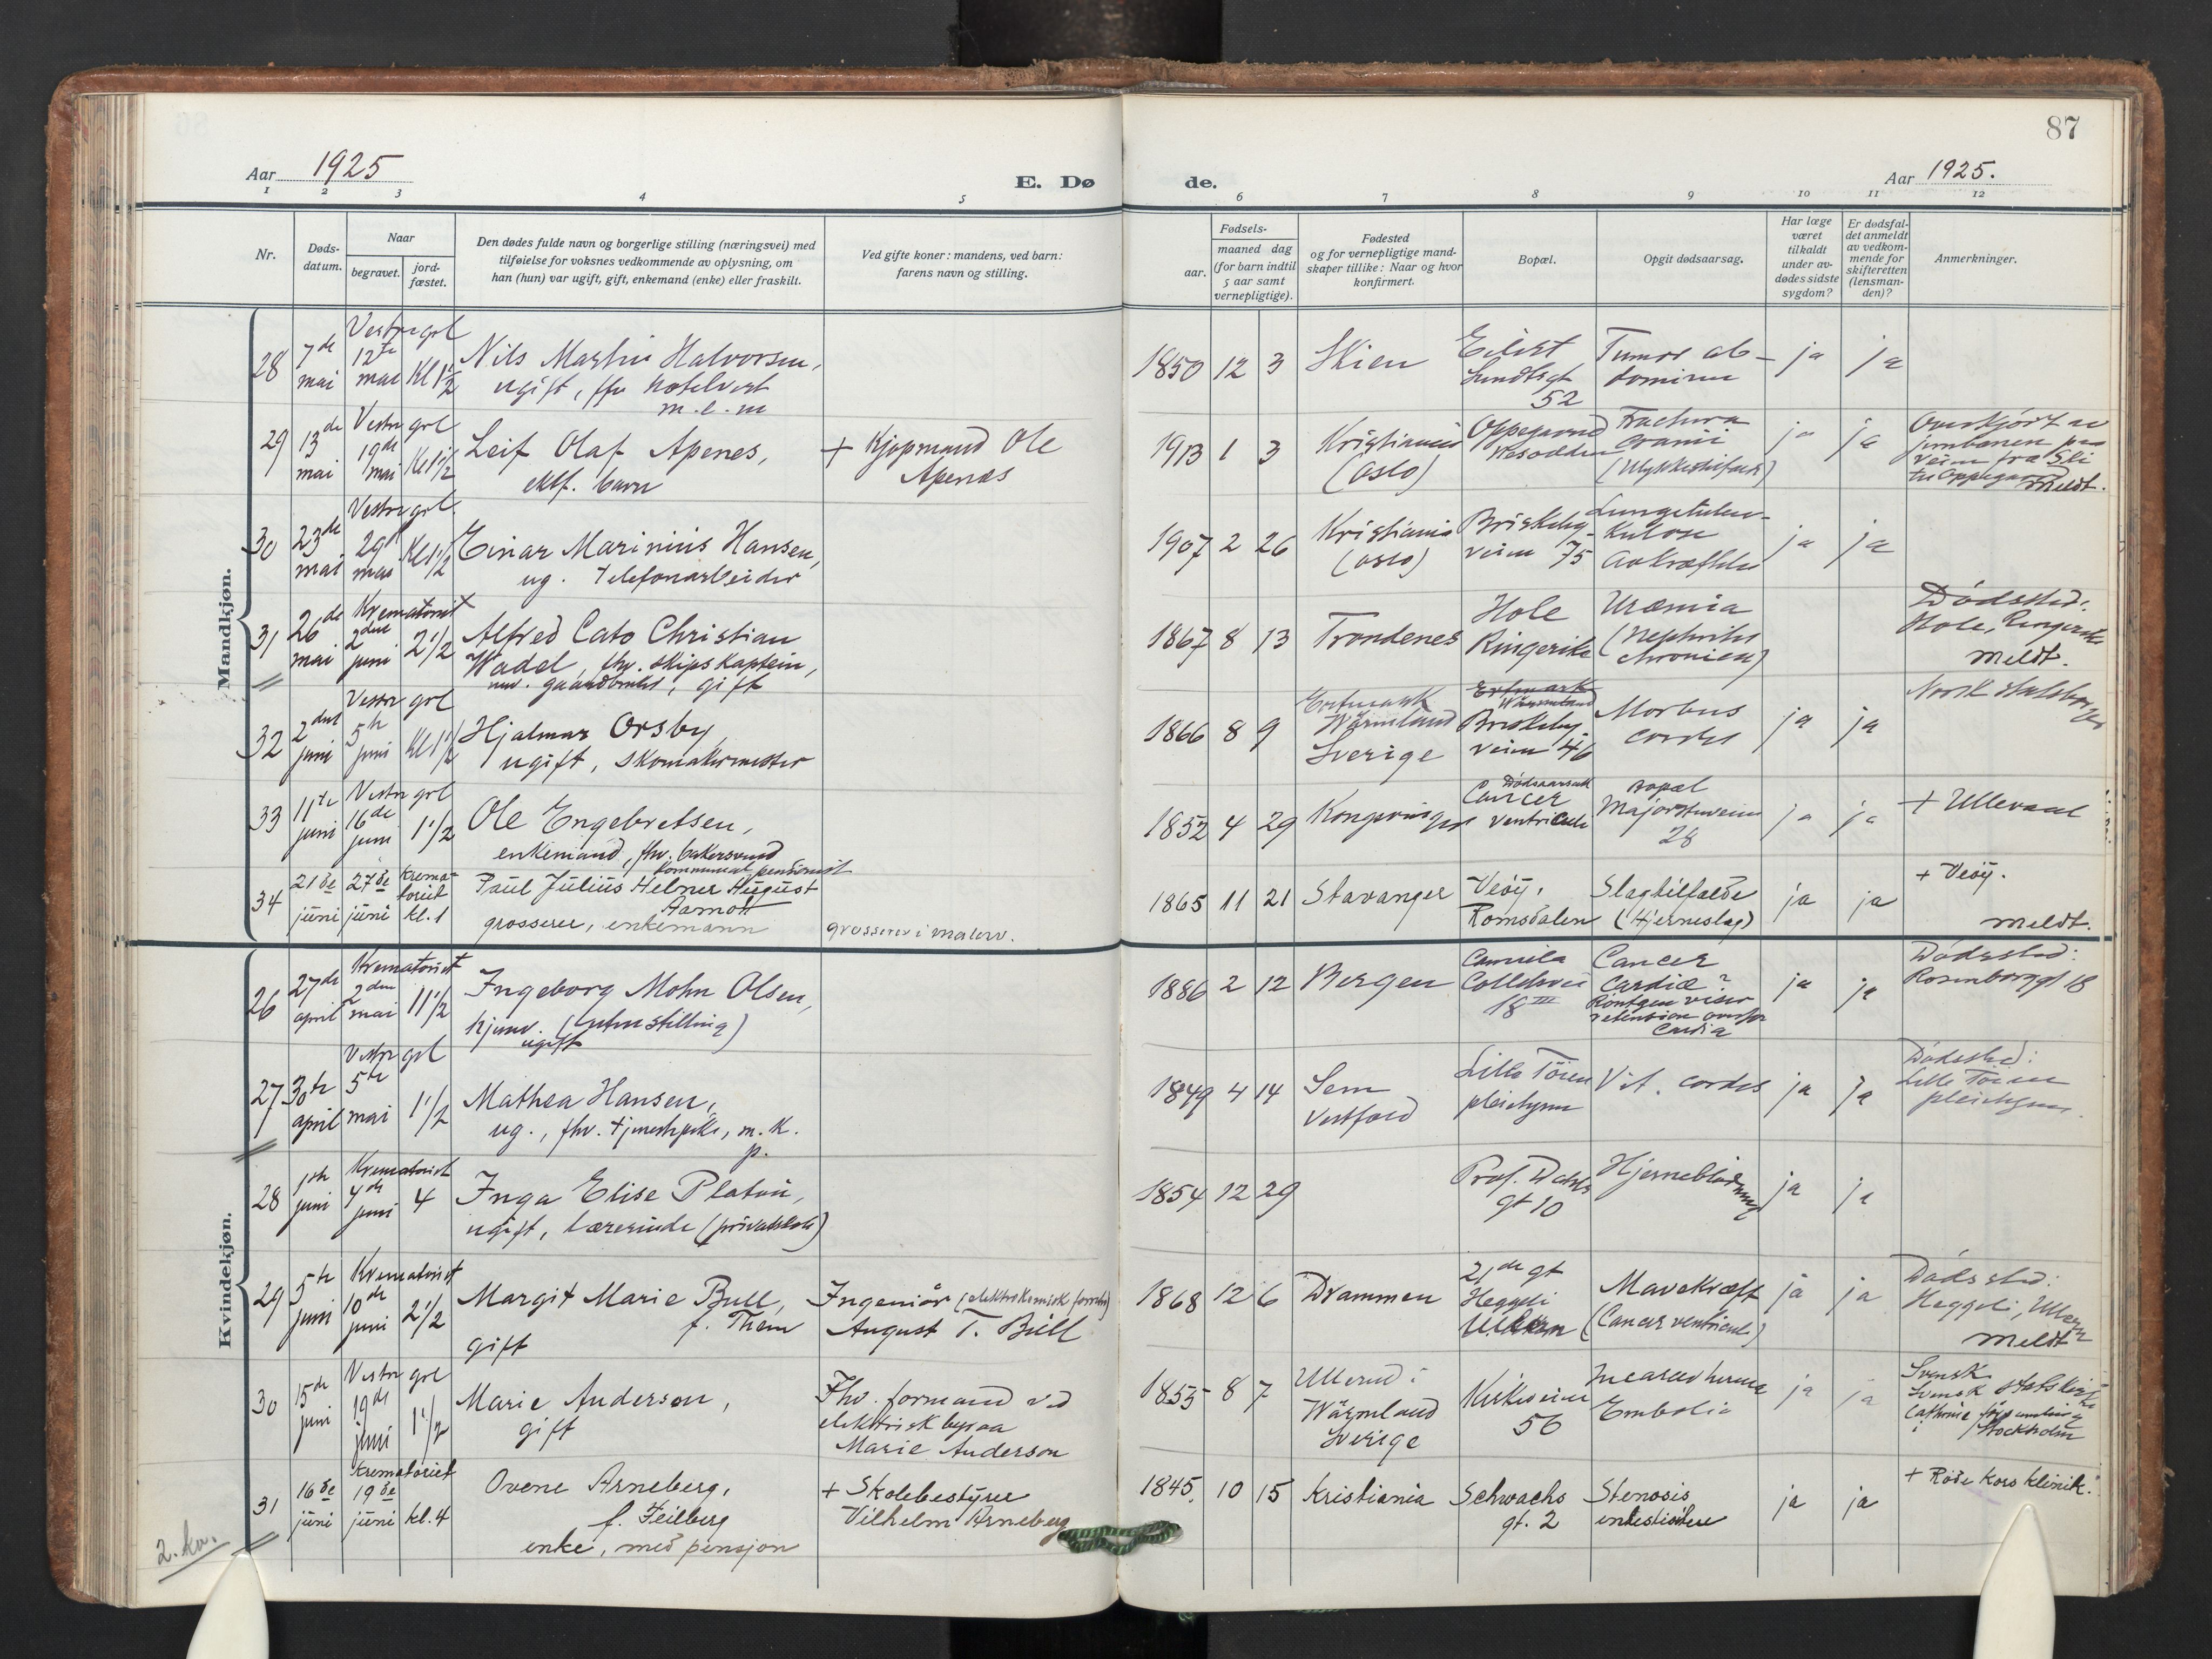 87
Aar 1925
E. Dø
de.
Aar 1925.
1 2 3 4 5 6 7 8 9 10 11 12
Nr.
Døds-
datum.
Naar
begravet.
jord-
fæstet.
Den dødes fulde navn og borgerlige stilling (næringsvei) med
tilføielse for voksnes vedkommende av oplysning, om
han (hun) var ugift, gift, enkemand (enke) eller fraskilt.
Ved gifte koner: mandens, ved barn:
farens navn og stilling.
aar.
Fødsels-
maaned dag
(for barn indtil
5 aar samt
vernepligtige).
Fødested
og for vernepligtige mand-
skaper tillike: Naar og hvor
konfirmert.
Bopæl.
Opgit dødsaarsag.
Har læge
været
tilkaldt
under av-
dødes sidste
sygdom?
Er dødsfal-
det anmeldt
av vedkom-
mende for
skifteretten
(lensman-
den)?
Anmerkninger.
Mandkjøn.
28
7de
mai
Vestre grl
12te
mai
Kl 1 1/2
Nils Martin Halvorsen,
ugift, fhv hotelvert
1850 12 3
Skien
Eilert
Sundtsgt
52
Tumor ab-
dominis
ja
ja
29
13de
mai
Vestre grl
19de
mai
Kl 1 1/2
Leif Olaf Apenes,
ektf. barn
+ Kjøpmand Ole
Apenæs
1913 1 3
Kristiania
(Oslo)
Oppegaard
Nesodden
Fractura
cranii
(Ulykkestilfælde)
ja
ja
Overkjørt av
jernbanen paa
veien fra Ski
til Oppegaard
Meldt.
30
23de
mai
Vestre grl.
29de
mai
Kl 1 1/2
Einar Marinius Hansen,
ug. telefonarbeider
1907 2 26
Kristiania
(Oslo)
Briskeby-
veien 75
Lungetuber-
kulose
Avkræftelse
ja
ja
31
26de
mai
Krematoriet
2den
juni
2 1/2
Alfred Cato Christian
Wadel, fhv. skipskaptein,
nuv. gaardbruker, gift
1867 8 13
Trondenes
Hole
Ringerike
Uræmia
(Nephritis
chronica)
Dødssted:
Hole, Ringerike
Meldt.
32
2den
juni
Vestre grl
5te
juni
Kl 1 1/2
Hjalmar Orsby,
ugift, skomakermester
1866 8 9
Wärmland
Sverige
Wärmland
Briskeby-
veien 46
Morbus
cordis
ja
ja
Norsk statsborger
33
11te
juni
Vestre grl
16de
juni
1 1/2
Ole Engebretsen,
enkemand, fhv. bakersvend
kommunal pensionist
1852 4 29
Kongsvinger
Dødsaarsak
Cancer
ventriculi
Bopæl
Majorstuveien
28
ja
ja
+ Ullevaal
34
21de
juni
27de
juni
Krema-
toriet
kl. 1
Paul Julius Helner August
Aamodt
grosserer, enkemann
grosserer i malerv.
1865 11 21
Stavanger
Veöy,
Romsdalen
Slagtilfælde
(Hjerneslag)
ja
ja
+ Veöy.
Meldt.
Kvindekjøn.
26
27de
april
Krematoriet
2den
mai
11 1/2
Ingeborg Mohn Olsen,
hjemv. (uten stilling)
ugift
1886 2 12
Bergen
Camilla
Colletsvei
18 III
Cancer
Cardiæ?
Röntgen viser
retension ovenfor
Cardia
ja
ja
Dødssted:
Rosenborggt 18
27
30te
april
Vestre grl
5te
mai
1 1/2
Mathea Hansen,
ug., fhv. tjenestepike, m. k.
p.
1849 4 14
Sem
Vestfold
Lille Tøien
pleiehjem
Vit. cordis
ja
ja
Dødssted:
Lille Tøien
pleiehjem.
28
1ste
juni
Krematoriet
4de
juni
4
Inga Elise Platou,
ugift, lærerinde (privatskole)
1854 12 29
Prof. Dahls
gt 10
Hjerneblødning
ja
ja
29
5te
juni
Krematoriet
10de
juni
2 1/2
Margit Marie Bull,
f. Thom
gift
Ingeniør (elektrokemisk forretn)
August T. Bull
1868 12 6
Drammen
21de gt
Heggeli
Ullern
Mavekræft
(Cancer ventriculi)
ja
ja
Dødssted:
Heggeli, Ullern
Meldt
30
15de
juni
Vestre grl
19de
juni
1 1/2
Marie Anderson,
gift
Fhv. formand ved
elektrisk byraa
Marie Anderson
1855 8 7
Ullerud i
Wärmland
Sverige
Kirkeveien
56
Embolia
ja
ja
Svensk
Svensk statskirke
Stockholm
31
16de
juni
Krematoriet
19de
juni
kl. 4
Ovene Arneberg,
f. Feilberg
enke, med pensjon
+ Skolebestyrer
Vilhelm Arneberg
1845. 10 15
Kristiania
Schwachs
gt. 2
Stenosis
ja
ja
+ Røde Kors klinik.
2. kv.